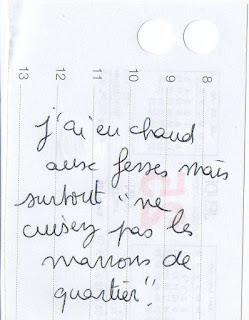 8
9
10
11
12
13
j'ai eu chaud
aux fesses mais
surtout "ne
cuisez pas les
marrons de
quartier".